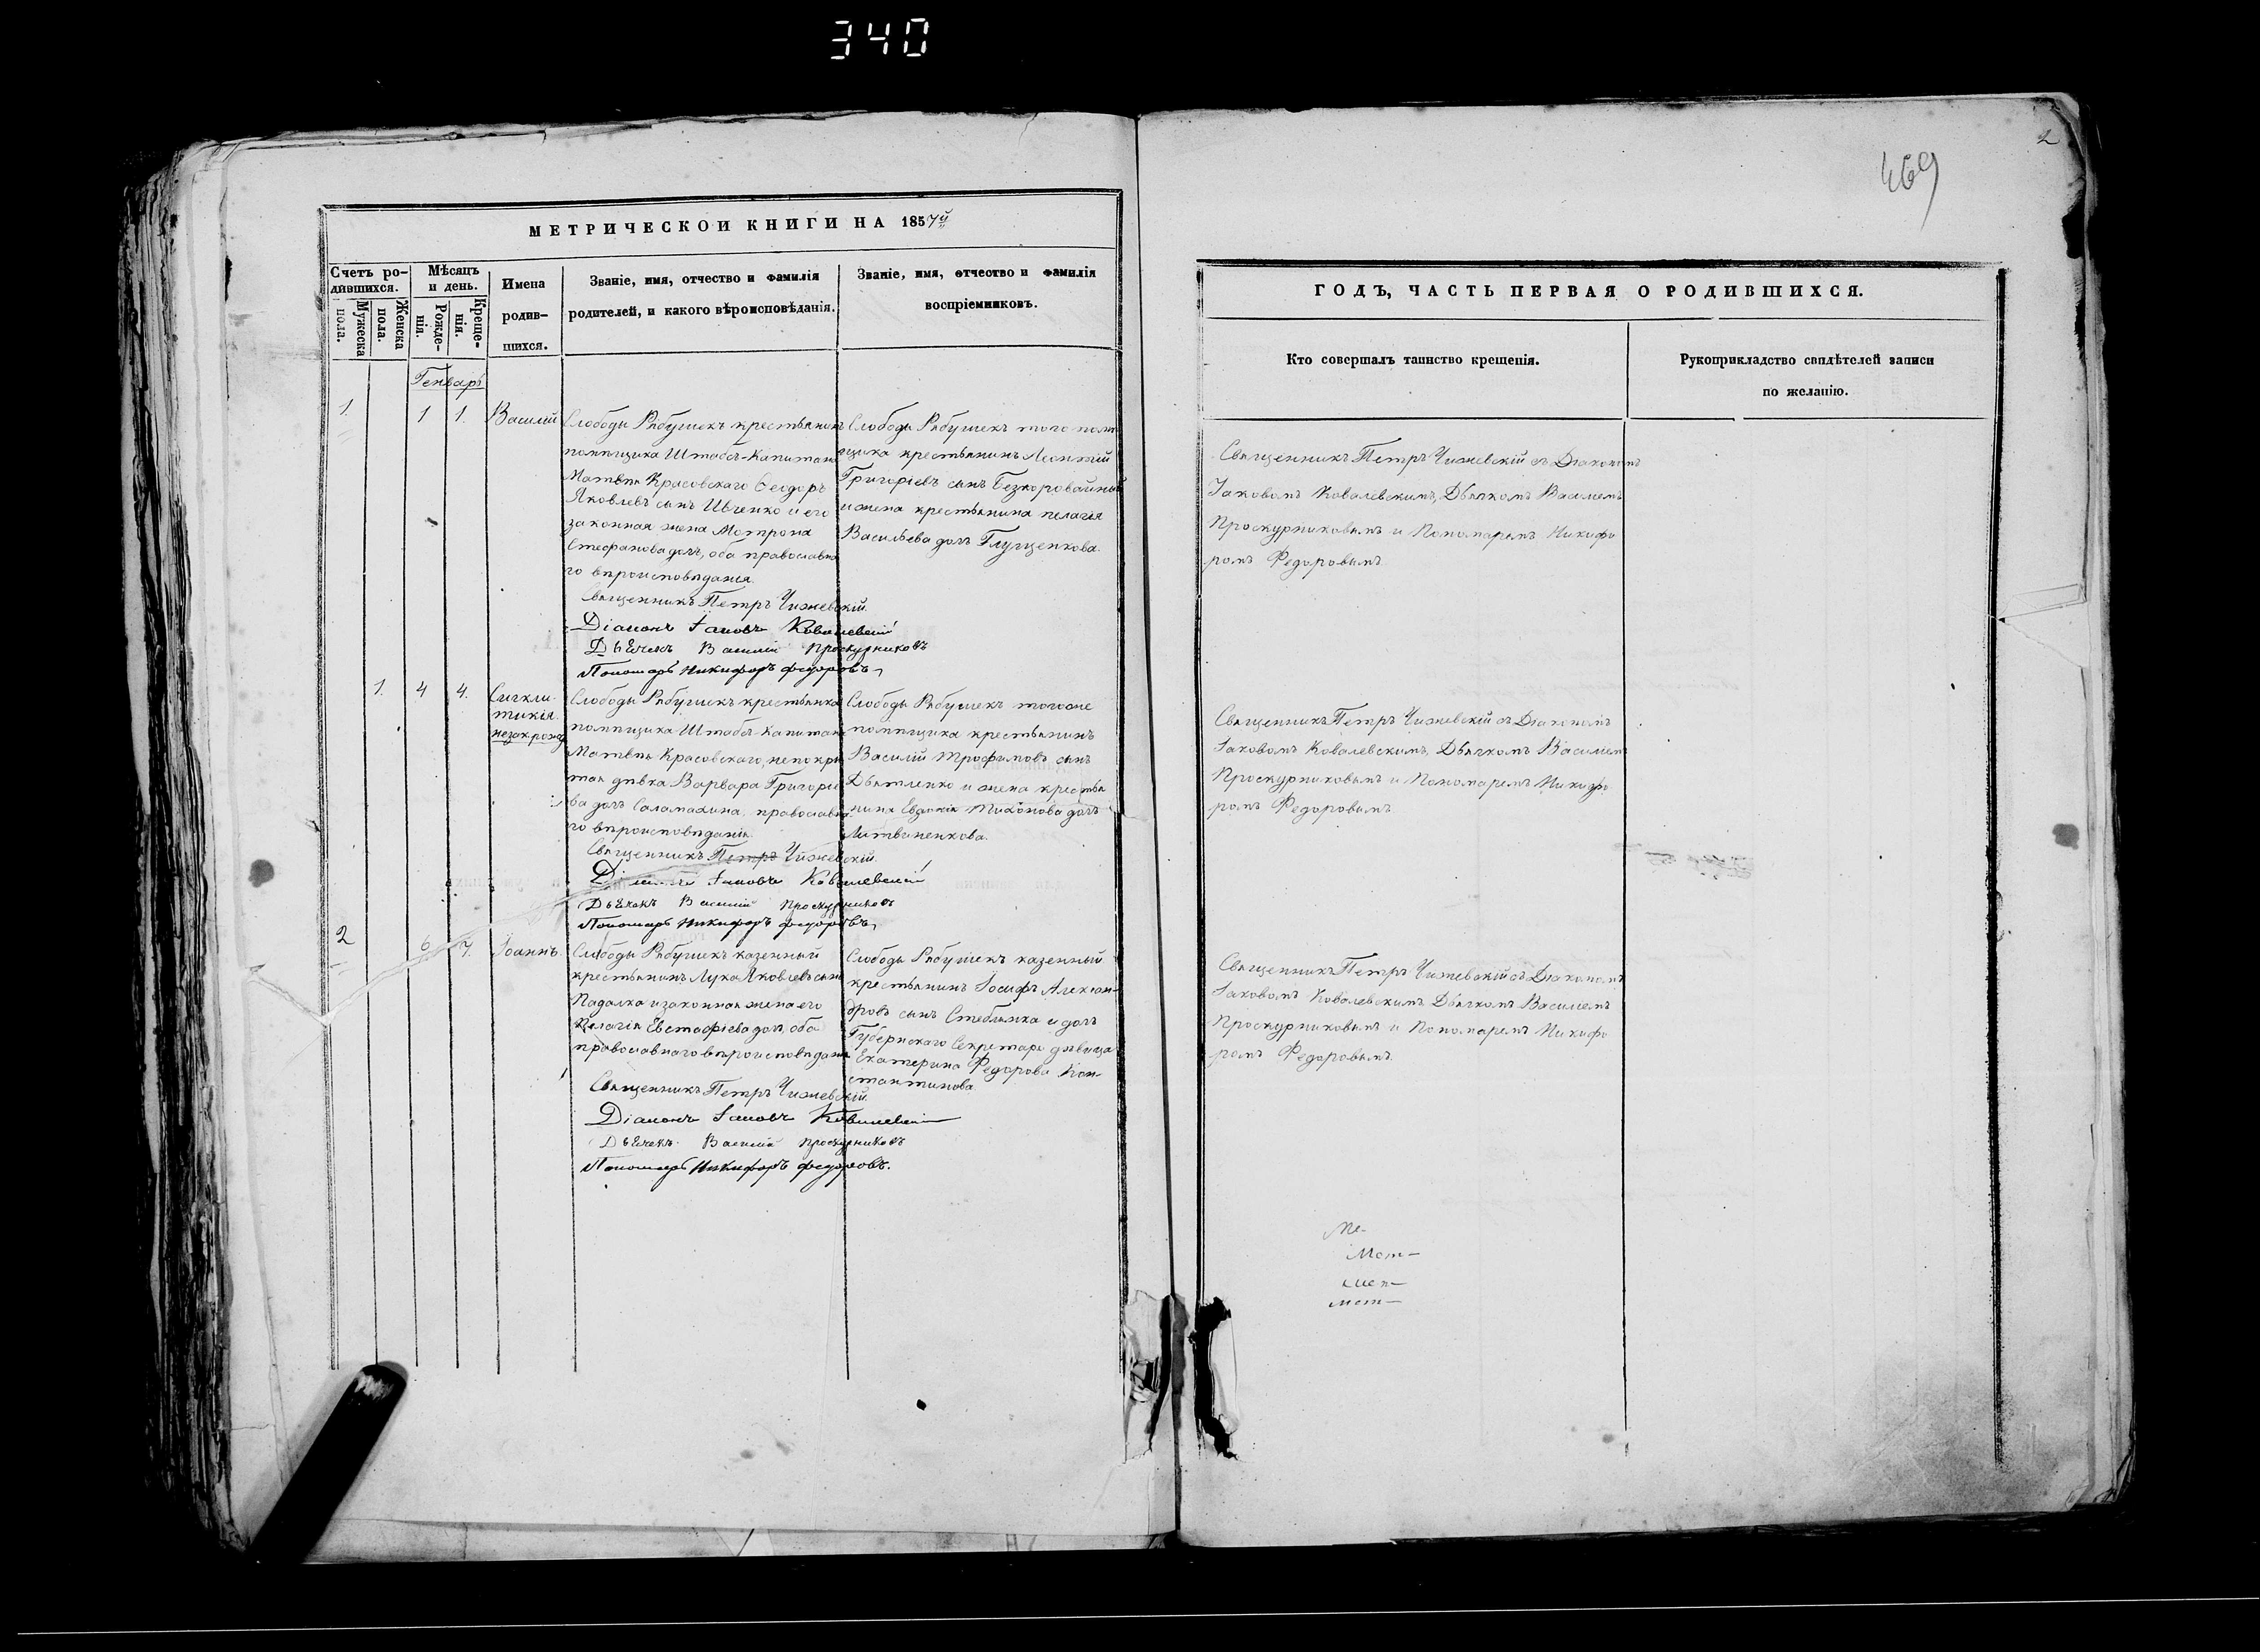 340
2
469
МЕТРИЧЕСКОИ КНИГИ НА 1857й
Счетъ ро-
дившихся.
Мужеска
пола.
Женска
пола.
Мѣсяцъ
и день.
Рожде-
нія.
Креще-
нія.
Имена
родив-
шихся.
Званіе, имя, отчество и фамилія
родителей, и какого вѣроисповѣданія.
Званіе, имя, отчество и фамилія
воспріемниковъ.
ГОДЪ, ЧАСТЬ ПЕРВАЯ О РОДИВШИХСЯ.
Кто совершалъ таинство крещенія.
Рукоприкладство свидѣтелей записи
по желанію.
Генварь
1. 1 1. Василій
Слободы Рябушекъ крестьянинъ
помѣщика Штабсъ-Капитана
Матвѣя Красовскаго Ѳеодоръ
Яковлевъ сынъ Ивченко и его
законная жена Мотрона
Стефанова дочь, оба православна
го вѣроисповѣданія.
Священникъ Петръ Чижевскій.
Діаконъ Іаковъ Ковалевскій
Дьячекъ Василій Проскурниковъ
Пономарь Никифоръ Федоровъ
Слободы Рябушекъ того помѣ
щика крестьянинъ Леонтій
Григоріевъ сынъ Безкоровайный
и жена крестьянина пелагія
Васильева дочь Глущенкова.
Священникъ Петръ Чижевскій съ Діакономъ
Іаковомъ Ковалевскимъ, Дьячкомъ Василіемъ
Проскурниковымъ и Пономаремъ Никифо
ромъ Федоровымъ.
1. 4 4. Сигкли-
тикія
незакрожд
Слободы Рябушекъ крестьянка
помѣщика Штабсъ-Капитана
Матвѣя Красовскаго, непокры
тая дѣвка Варвара Григоріе
ва дочь Саламахина, православна
го вѣроисповѣданія.
Священникъ Петръ Чижевскій.
Діаконъ Іаковъ Ковалевскій
Дьячекъ Василій Проскурниковъ
Пономарь Никифоръ Федоровъ
Слободы Рябушекъ тогоже
помѣщика крестьянинъ
Василій Трофимовъ сынъ
Дьятленко и жена крестья
нина Евдокія Тихонова дочь
Литвиненкова.
Священникъ Петръ Чижевскій съ Діакономъ
Іаковомъ Ковалевскимъ, Дьячкомъ Василіемъ
Проскурниковымъ и Пономаремъ Никифо
ромъ Федоровымъ
2 6 7. Іоаннъ.
Слободы Рябушекъ казенный
крестьянинъ Лука Яковлевъ сынъ
Падалка и законная жена его
Пелагія Евстафіева дочь, оба
православнаго вѣроисповѣданія
Священникъ Петръ Чижевскій.
Діаконъ Іаковъ Ковалевскій
Дьячекъ Василій Проскурниковъ
Пономарь Никифоръ Федоровъ.
Слободы Рябушекъ казенный
крестьянинъ Іосифъ Алексан-
дровъ сынъ Стеблянка и дочь
Губернскаго Секретаря дѣвица
Екатерина Федорова Кон-
стантинова.
Священникъ Петръ Чижевскій съ Діакономъ
Іаковомъ Ковалевскимъ Дьячкомъ Василіемъ
Проскурниковымъ и Пономаремъ Никифо
ромъ Федоровымъ.